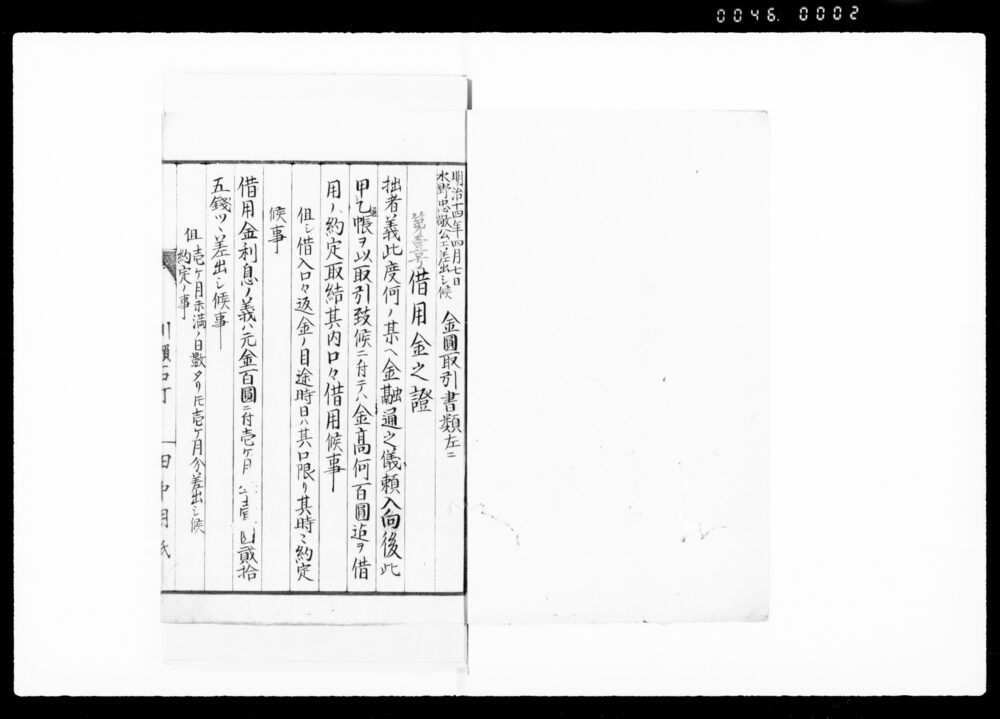 0046. 0002
明治十四年四月七日
水野忠敬公エ差出シ候
金圓取引書類左ニ
第壹号
借用金之證
拙者義此度何ノ某ヘ金融通之儀頼入向後此
甲乙帳ヲ以取引致候ニ付テハ金高何百圓迠ヲ借
用ノ約定取結其内口々借用候事
但シ借入口々返金ノ目途時日ハ其口限リ其時々約定
候事
借用金利息ノ義ハ元金百圓ニ付壱ケ月 壱圓貳拾
五錢ツヽ差出シ候事
但壱ケ月未満ノ日數タリ𪜈壱ケ月分差出シ候
約定ノ事
田中用紙